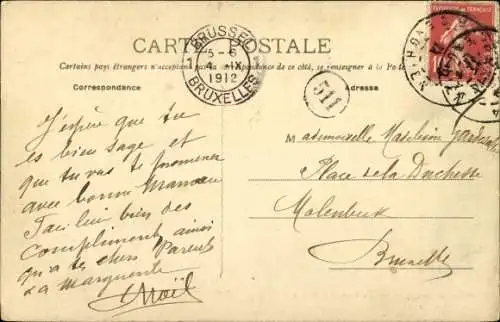 CARTE POSTALE
Certains pays étrangers n'acceptent pas la correspondance de ce côté, se renseigner à la Poste
Correspondance
Adresse
BRUSSEL
5-6
4 IX
1912
BRUXELLES
511
J'espère que tu
es bien sage et
que tu vas te promener
avec bonne Maman
Fais lui bien des
compliments ainsi
qu'a tes chers Parents
& a Marguerite
Noël
Mademoiselle Madeleine
Place de la Duchesse
Molenbeek
Bruxelles